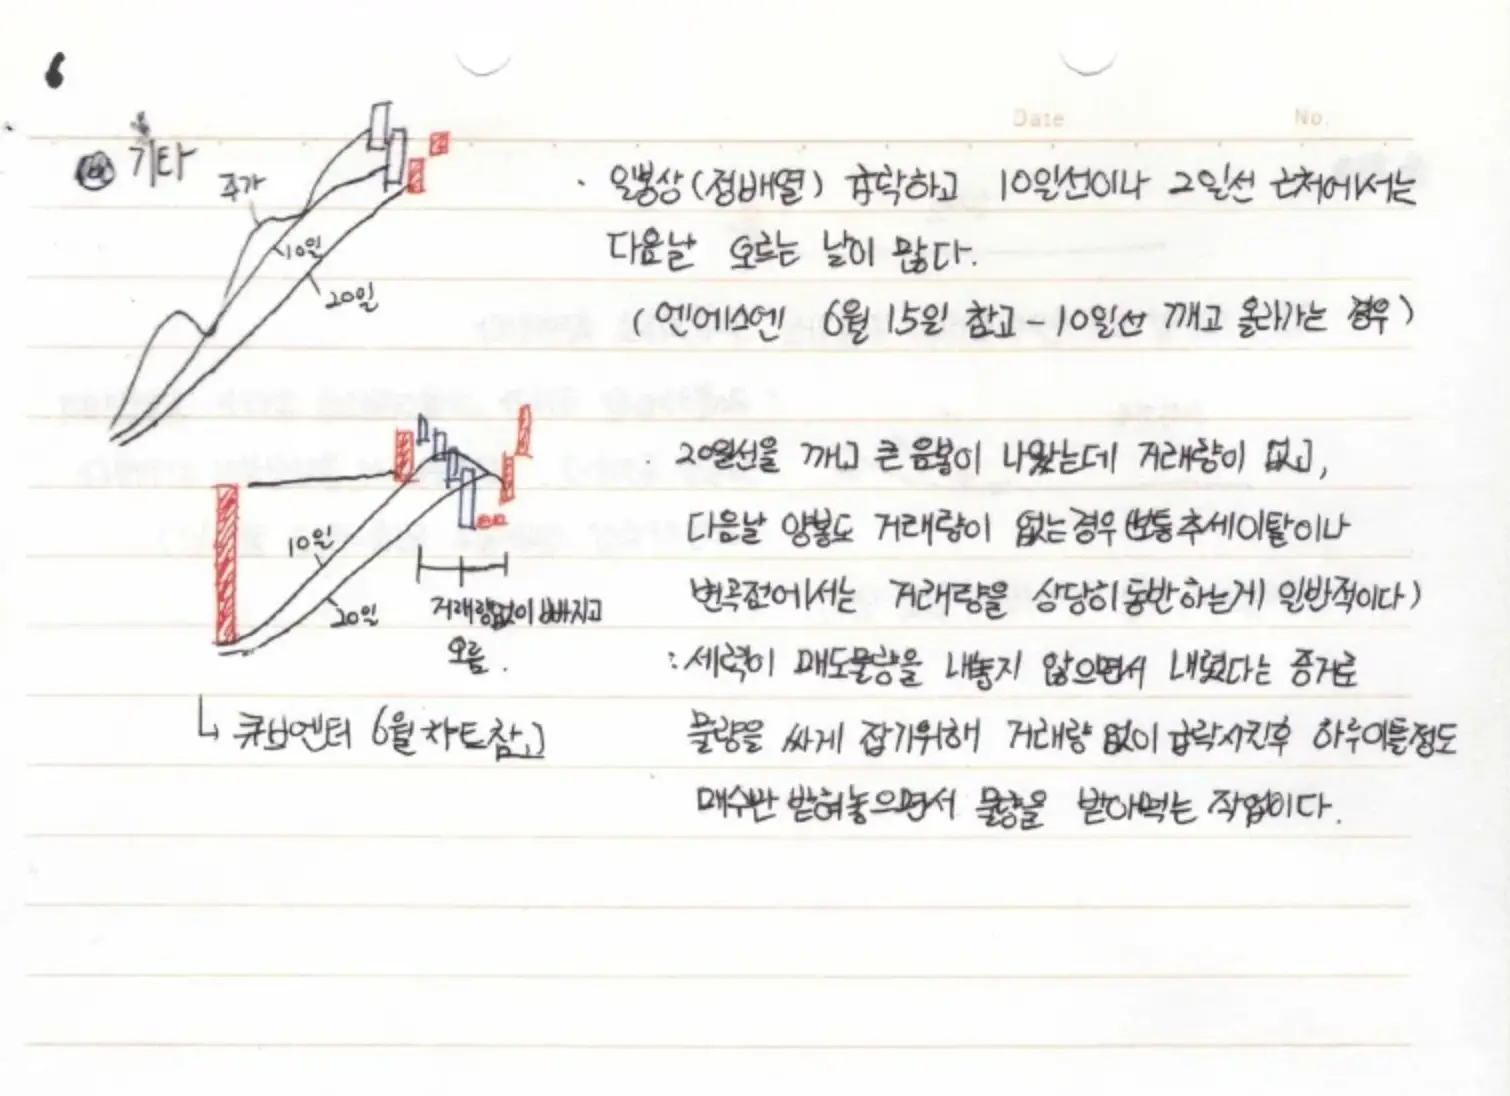 6
Date
No.
기타
주가
10일
20일
· 일봉상 (정배열) 급락하고 10일선이나 2일선 근처에서는
다음날 오르는 날이 많다.
(엔에스엔 6월 15일 참고 - 10일선 깨고 올라가는 경우)
10일
20일
거래량없이 빠지고
오름.
↳ 큐브엔터 6월 차트참고
· 20일선을 깨고 큰 음봉이 나왔는데 거래량이 없고,
다음날 양봉도 거래량이 없는경우 (보통 추세이탈이나
변곡점에서는 거래량을 상당히 동반하는게 일반적이다)
: 세력이 매도물량을 내놓지 않으면서 내렸다는 증거로
물량을 싸게 잡기위해 거래량 없이 급락시킨후 하루이틀정도
매수만 받혀놓으면서 물량을 받아먹는 작업이다.